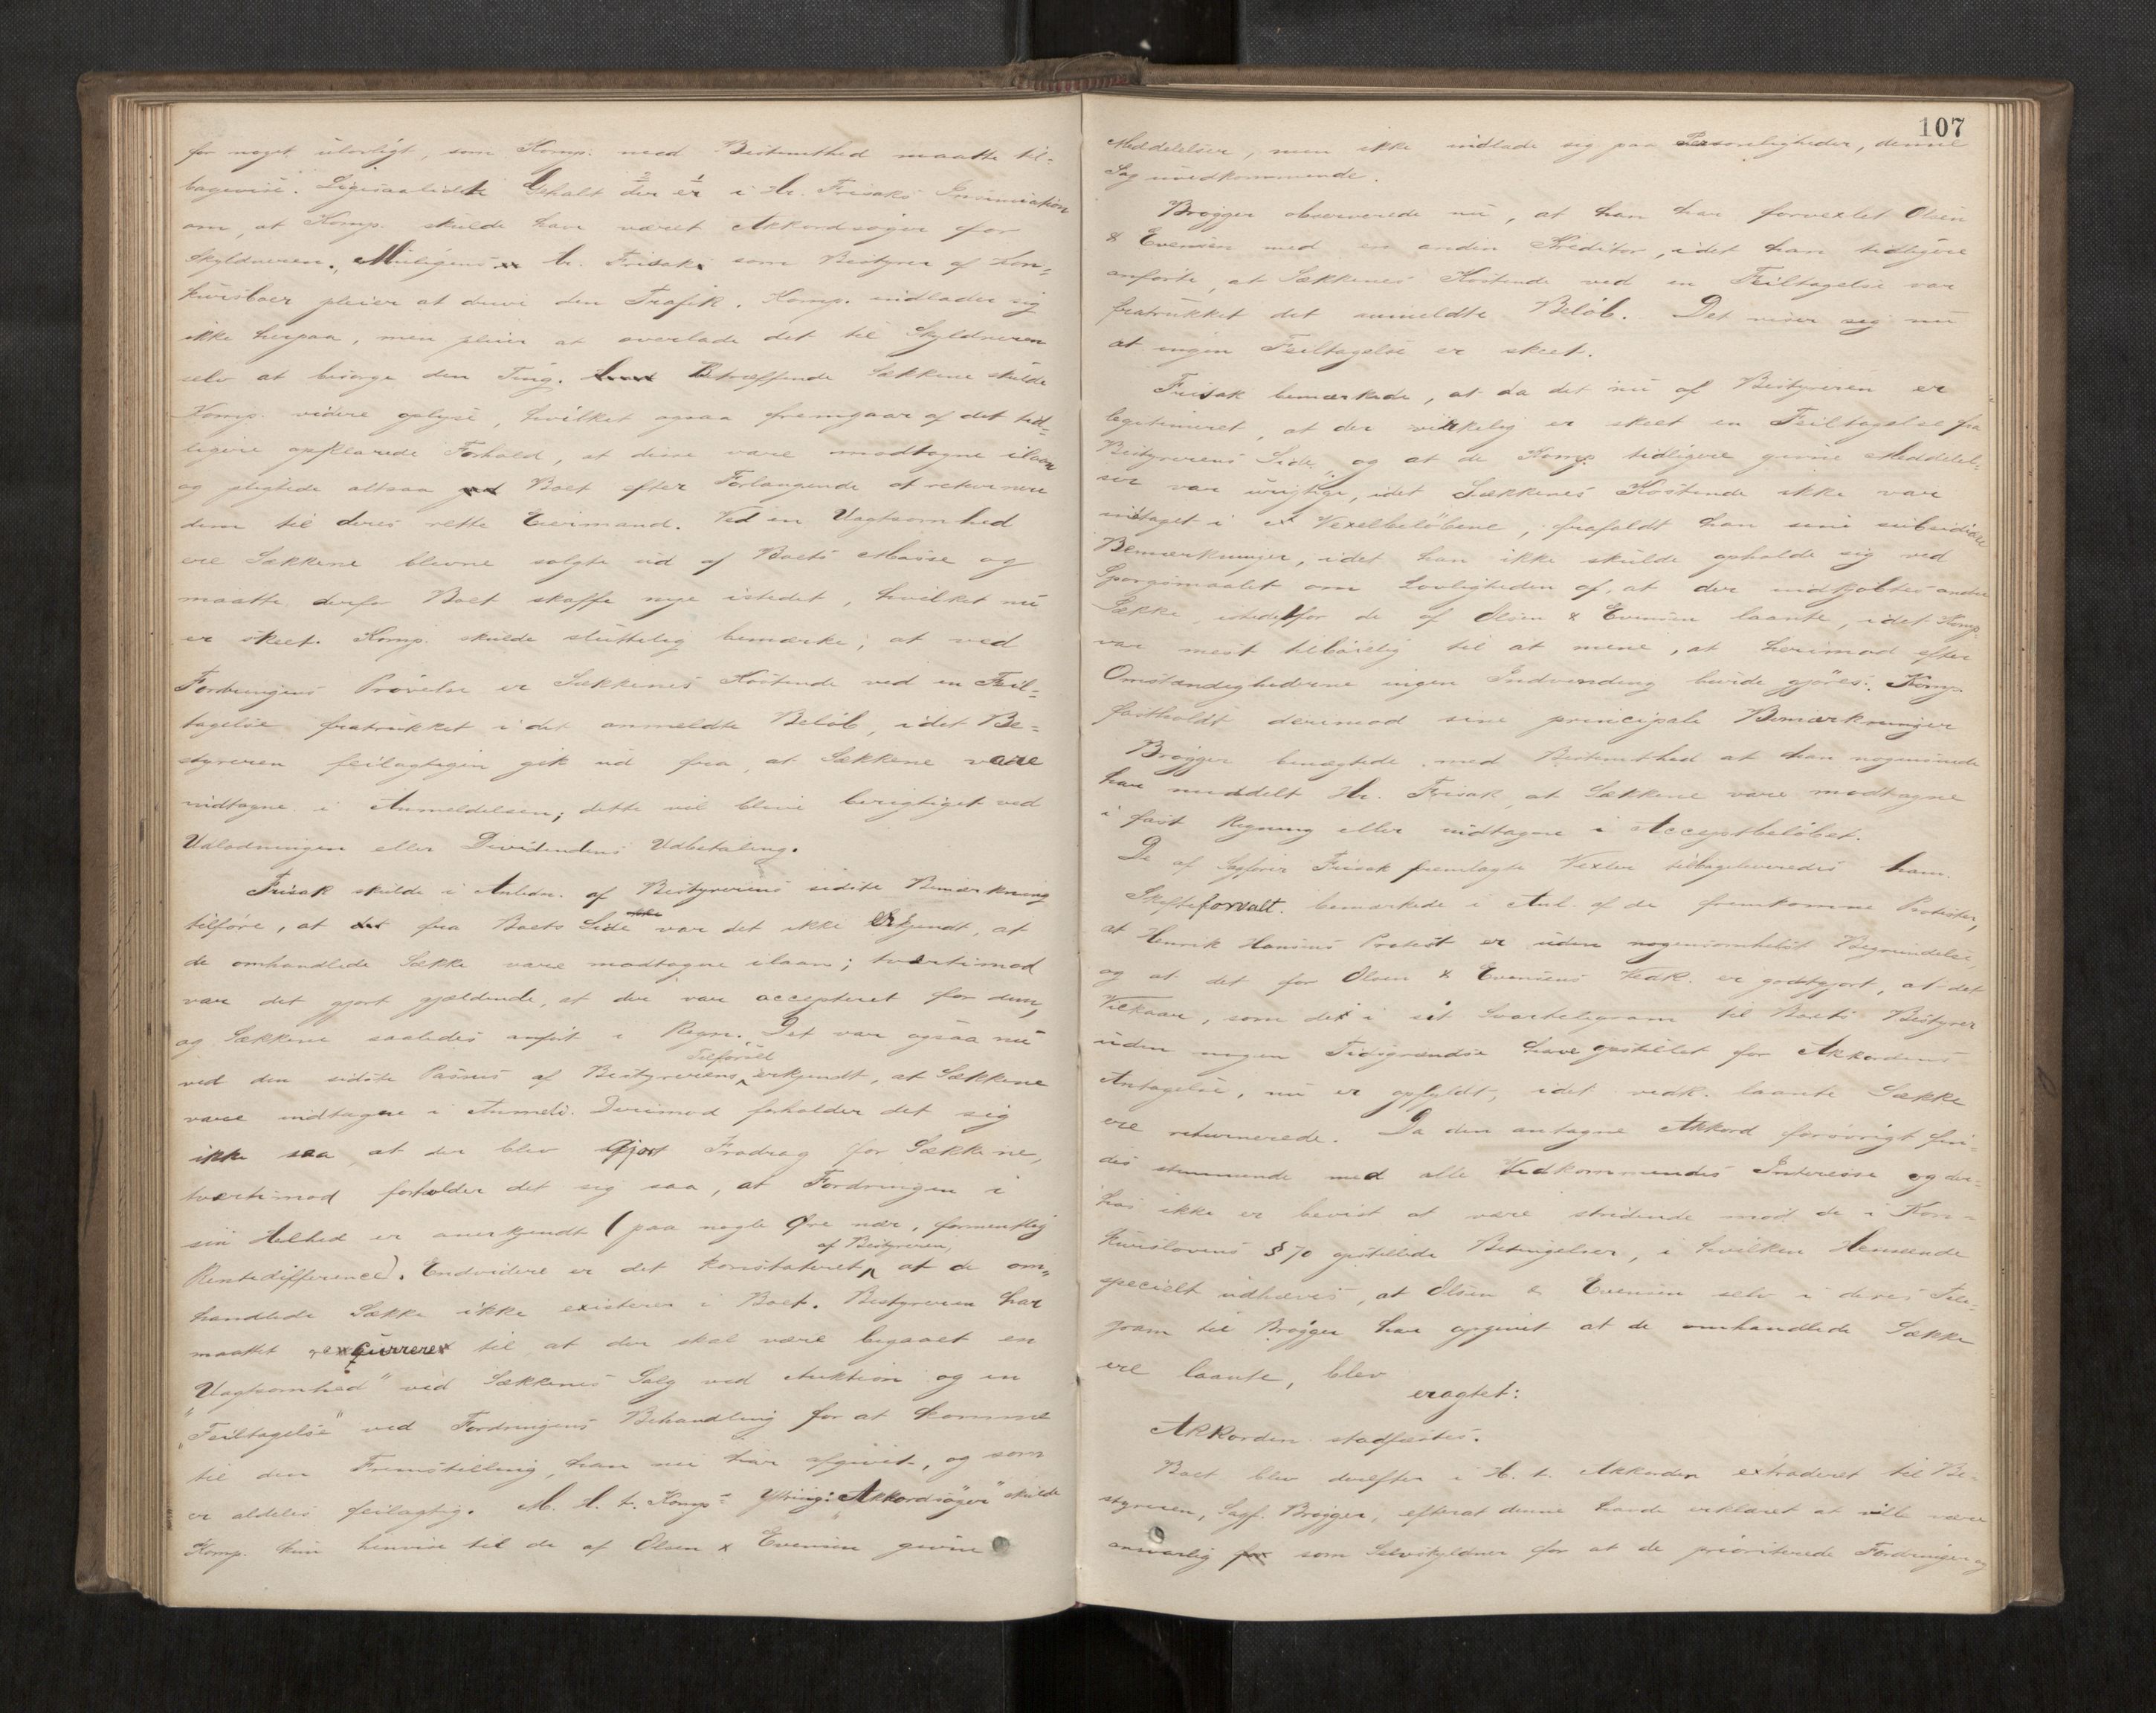 for noget ulovligt, som Komp. med Bestemthed maatte til-
bagevise. Ligesaalidt Gehalt der er i Hr. Frisaks Insinuation
om, at Komp. skulde have været Akkordsøger for
Skyldneren. Muligens Hr. Frisak som Bestyrer af Kon-
kursboer pleier at drive den Trafik. Komp. indlader sig
ikke herpaa, men pleier at overlade det til Skyldneren
selv at besørge den Ting. Betræffende Sækkene skulde
Komp. videre oplyse, hvilket ogsaa fremgaar af det tid-
ligere opklarede Forhold, at disse vare modtagne ilaan
og pligtede altsaa Boet efter Forlangende at returnere
dem til deres rette Eiermand. Ved en Uagtsomhed
ere Sækkene blevne solgte ud af Boets Masse og
maatte derfor Boet skaffe nye istedet, hvilket nu
er skeet. Komp. skulde sluttelig bemærke, at ved
Fordringens Prøvelse er Sækkenes Kostende ved en Feil-
tagelse fratrukket i det anmeldte Beløb, idet Be-
styreren feilagtigen gik ud fra, at Sækkene vare
indtagne i Anmeldelsen; dette vil blive berigtiget ved
Udlodningen eller Dividendens Udbetaling.
Frisak skulde i Anledn. af Bestyrerens sidste Bemærkning
tilføre, at fra Boets Side var det ikke erkjendt, at
de omhandlede Sække vare modtagne ilaan; tvertimod
var det gjort gjældende, at der var accepteret for dem,
og Sækkene saaledes anført i Regn. Det var ogsaa nu
ved den sidste Passus af Bestyrerens Tilførsel erkjendt, at Sækkene
vare indtagne i Anmeld. Derimod forholder det sig
ikke saa at der blev gjort Fradrag for Sækkene,
tvertimod forholder det sig saa, at Fordringen i
sin Helhed er anerkjendt (paa nogle Øre nær, formentlig
Rentedifference). Endvidere er det konstateret af Bestyreren, at de om-
handlede Sække ikke existerer i Boet. Bestyreren har
maattet recurrere til, at der skal være begaaet en
"Uagtsomhed" ved Sækkenes Salg ved Auktion og en
"Feiltagelse" ved Fordringens Behandling for at komme
til den Fremstilling, han nu har afgivet, og som
er aldeles feilagtig. M. H. t. Komp.s Yttring: "Akkordsøger" skulde
Komp. kun henvise til de af Olsen & Evensen givne
107
Meddelelser, men ikke indlade sig paa Personligheder, denne
Sag uvedkommende.
Brøgger observerede nu, at han har forvexlet Olsen
& Evensen med en anden Kreditor, idet han tidligere
anførte, at Sækkenes Kostende ved en Feiltagelse var
fratrukket det anmeldte Beløb. Det viser sig nu
at ingen Feiltagelse er skeet.
Frisak bemærkede, at da det nu af Bestyreren er
legitimeret, at der virkelig er skeet en Feiltagelse fra
Bestyrerens Side, og at de Komp. tidligere givne Meddelel-
ser var urigtige, idet Sækkenes Kostende ikke var
indtaget i Vexelbeløbene, frafaldt han sine subsidiære
Bemærkninger, idet han ikke skulde opholde sig ved
Spørgsmaalet om Lovligheden af, at der indkjøbtes andre
Sække istedetfor de af Olsen & Evensen laante, idet Komp.
var mest tilbøielig til at mene, at herimod efter
Omstændighederne ingen Indvending burde gjøres. Komp.
fastholdt derimod sine principale Bemærkninger
Brøgger benægtede med Bestemthed at han nogensinde
har meddelt Hr. Frisak, at Sækkene vare modtagne
i fast Regning eller indtagne i Acceptbeløbet.
De af Sagfører Frisak fremlagte Vexler tilbageleveredes ham.
Skifteforvalt. bemærkede i Anl. af de fremkomne Protester,
at Henrik Hansens Protest er uden nogensomhelst Begrundelse,
og at det for Olsen & Evensens Vedk. er godtgjort, at det
Vilkaar, som de i sit Svartelegram til Boets Bestyrer
uden nogen Tidsgrændse have opstillet for Akkordens
Antagelse, nu er opfyldt, idet vedk. laante Sække
ere returnerede. Da den antagne Akkord forøvrigt fin-
des stemmende med alle Vedkommendes Interesse og der-
hos ikke er bevist at være stridende mod de i Kon-
kurslovens § 70 opstillede Betingelser, i hvilken Henseende
specielt udhæves, at Olsen & Evensen selv i deres Tele-
gram til Brøgger have opgivet at de omhandlede Sække
ere laante, blev
eragtet:
Akkorden stadfæstes.
Boet blev derefter i H. t. Akkorden extraderet til Be-
styreren, Sagf. Brøgger, efterat denne havde erklæret at ville være
ansvarlig som Selvskyldner for at de prioriterede Fordringer og